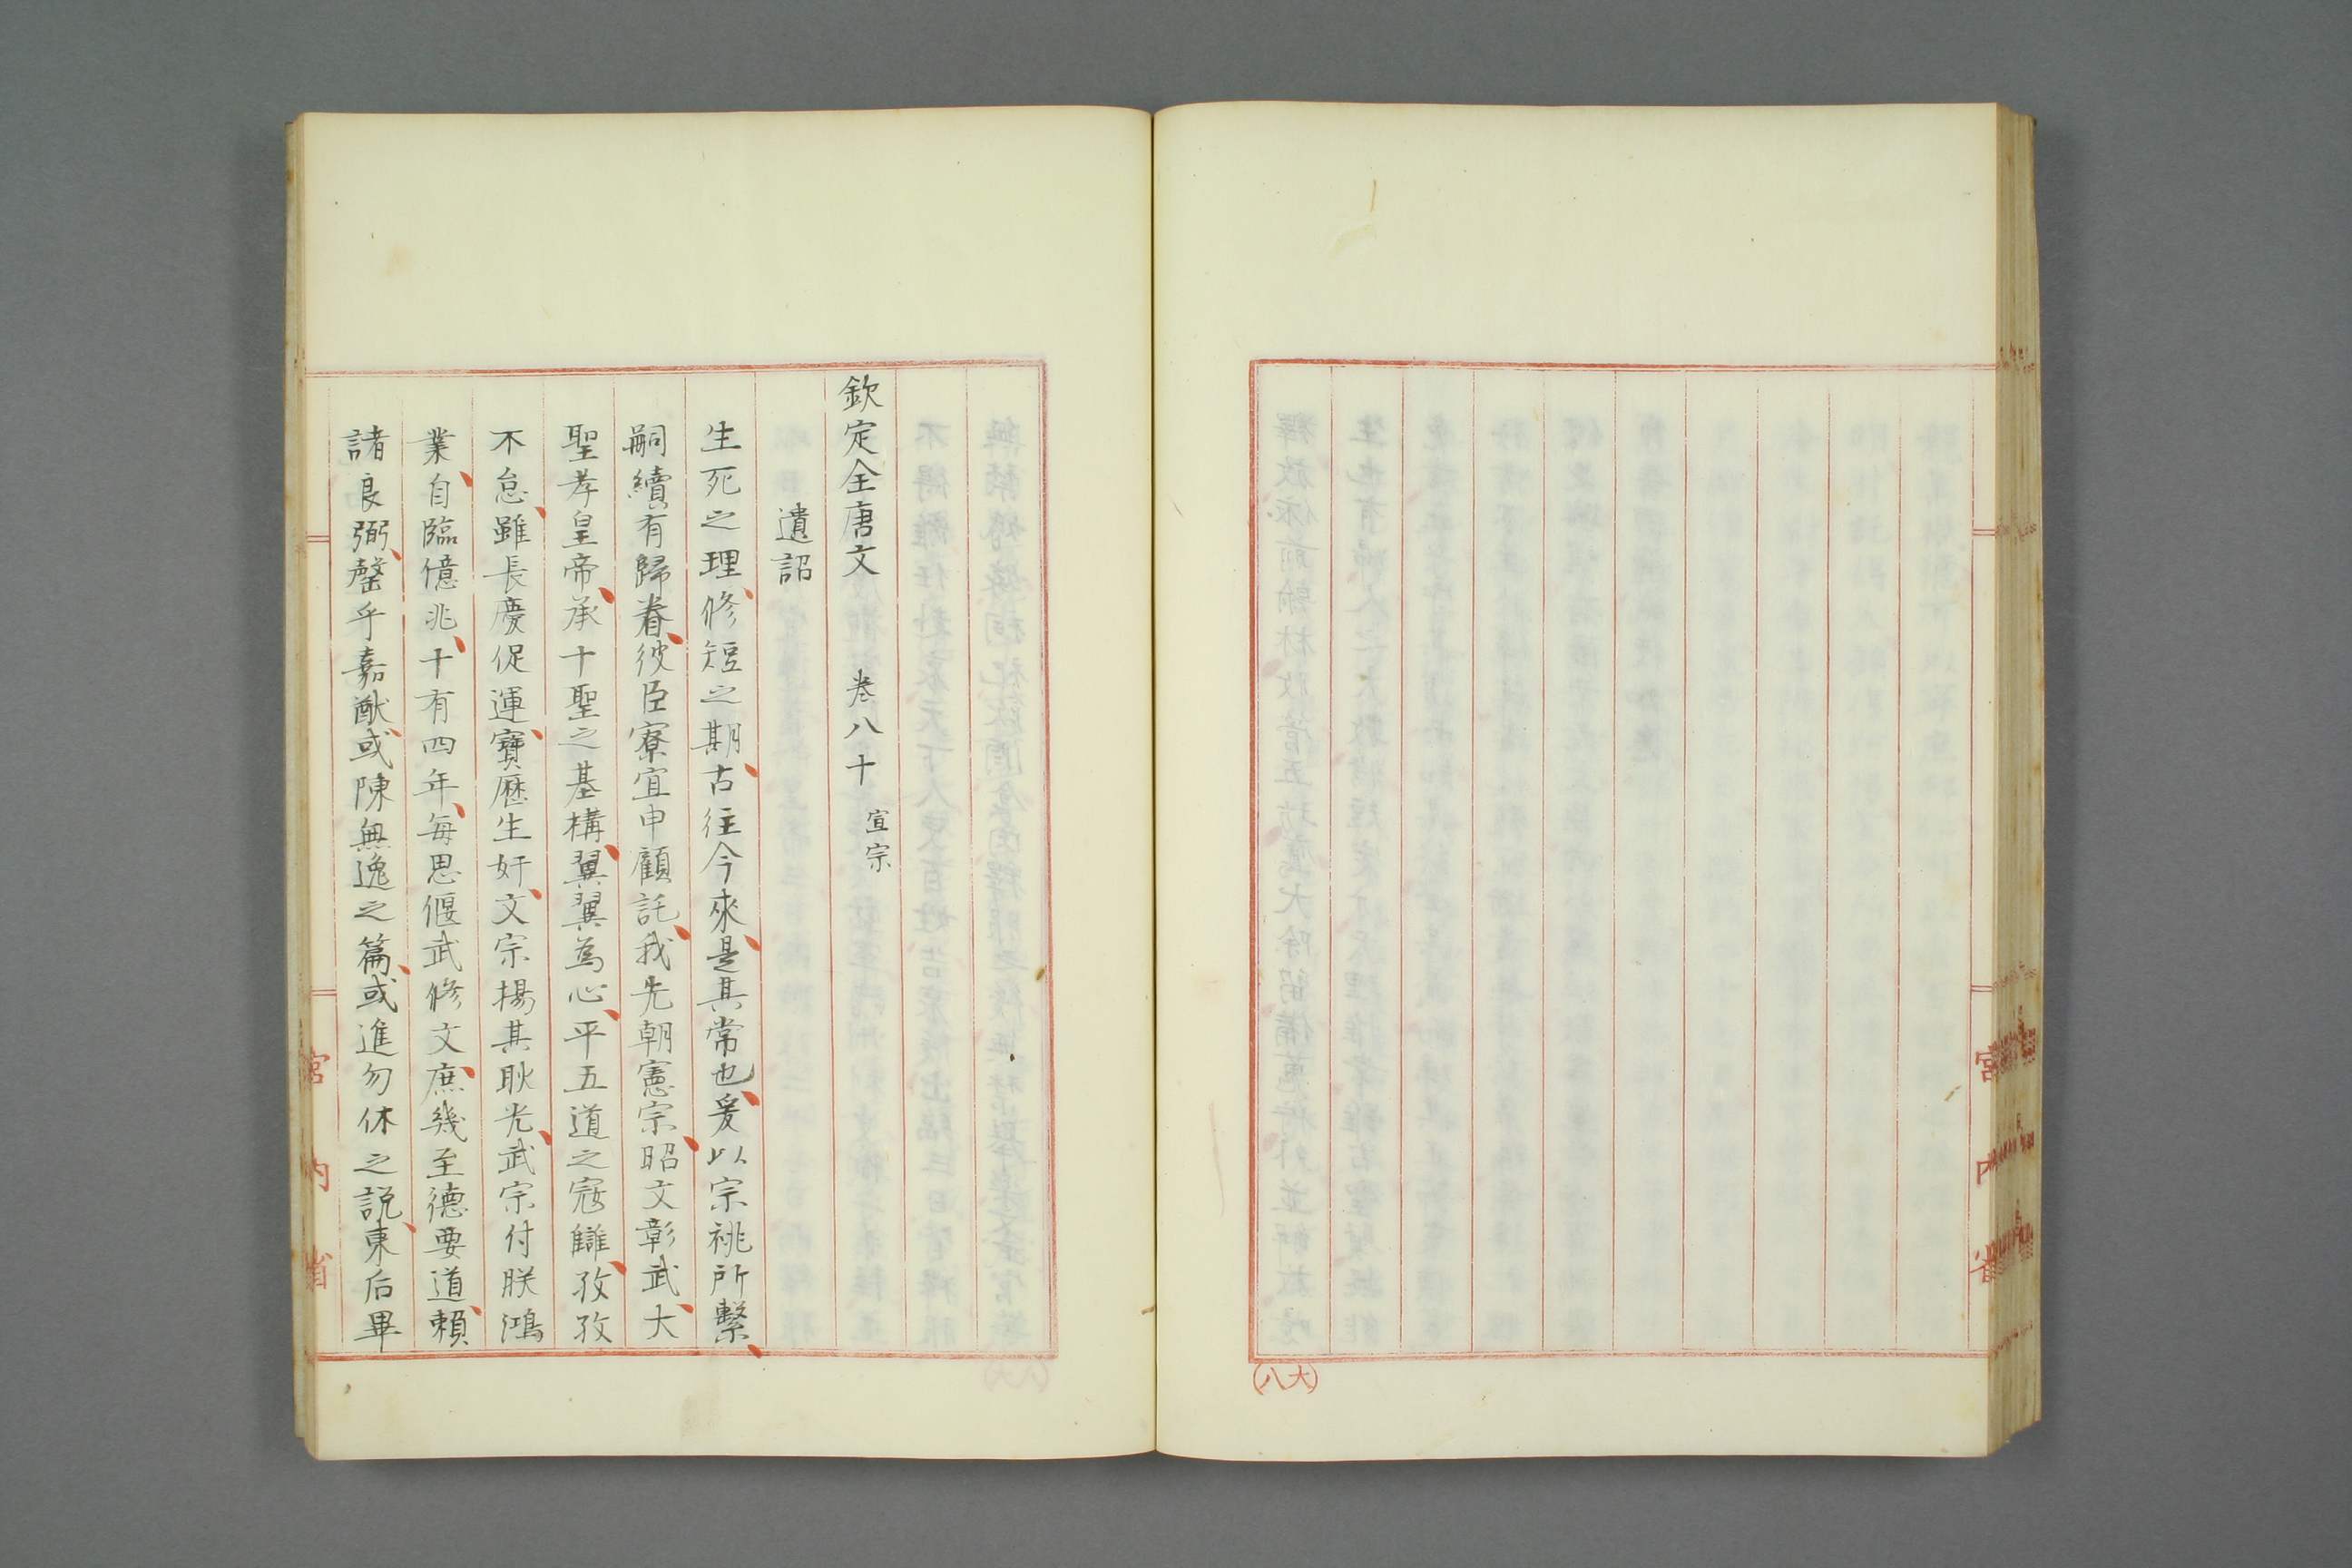 宮內省
(八大)
欽定全唐文　卷八十　宣宗
遺詔
生死之理、修短之期、古往今來、是其常也、爰以宗祧所繫、
嗣續有歸、眷彼臣寮宜申顧託、我先朝憲宗、昭文彰武、大
聖孝皇帝、承十聖之基構、翼翼為心、平五道之寇讎、孜孜
不怠、雖長慶促運、寶歷生奸、文宗揚其耿光、武宗付朕鴻
業、自臨億兆、十有四年、每思偃武修文、庶幾至德要道、賴
諸良弼、罄乎嘉猷、或陳無逸之篇、或進勿休之説、東后畢
宮內省